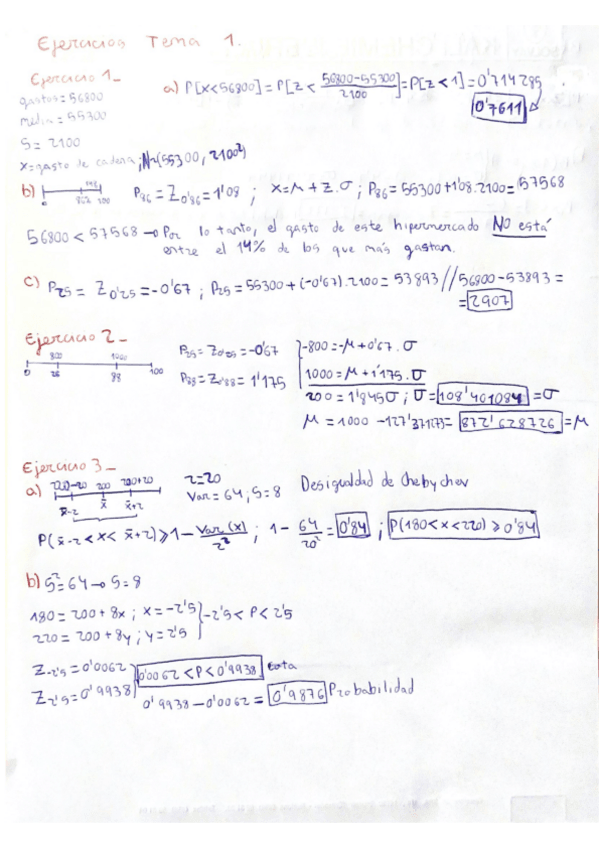 Ejercicios Tema 1.
Ejercicio 1_
gastos = 56800
media = 55300
S = 2100
x = gasto de cadena ; N~(55300, 2100²)
a) P[x<56800] = P[z < (56800-55300)/2100] = P[z < 1] = 0'714285
0'7611
b) P86 = Z0'86 = 1'08 ; x = μ + z.σ ; P86 = 55300+1'08.2100 = 57568
0 862 100
56800 < 57568 → Por lo tanto, el gasto de este hipermercado NO está
entre el 14% de los que más gastan.
c) P25 = Z0'25 = -0'67 ; P25 = 55300 + (-0'67).2100 = 53893 // 56800-53893 =
= 2907
Ejercicio 2_
800 1000
0 25 88 100
P25 = Z0'25 = -0'67
P88 = Z0'88 = 1'175
-800 = -μ + 0'67.σ
1000 = μ + 1'175.σ
200 = 1'845σ ; σ = 108'401084 = σ
μ = 1000 - 127'371273 = 872'628726 = μ
Ejercicio 3_
a) 200-20 200 200+20
x̄-z x̄ x̄+z
z = 20
Var = 64 ; S = 8
Desigualdad de Chebychev
P(x̄-z < x < x̄+z) ⩾ 1 - Var(x)/z² ; 1 - 64/20² = 0'84 ; P(180<x<220) ⩾ 0'84
b) S² = 64 → S = 8
180 = 200 + 8x ; x = -2'5 } -2'5 < P < 2'5
220 = 200 + 8y ; y = 2'5
Z-2'5 = 0'0062 } 0'0062 < P < 0'9938 cota
Z2'5 = 0'9938 } 0'9938 - 0'0062 = 0'9876 Probabilidad